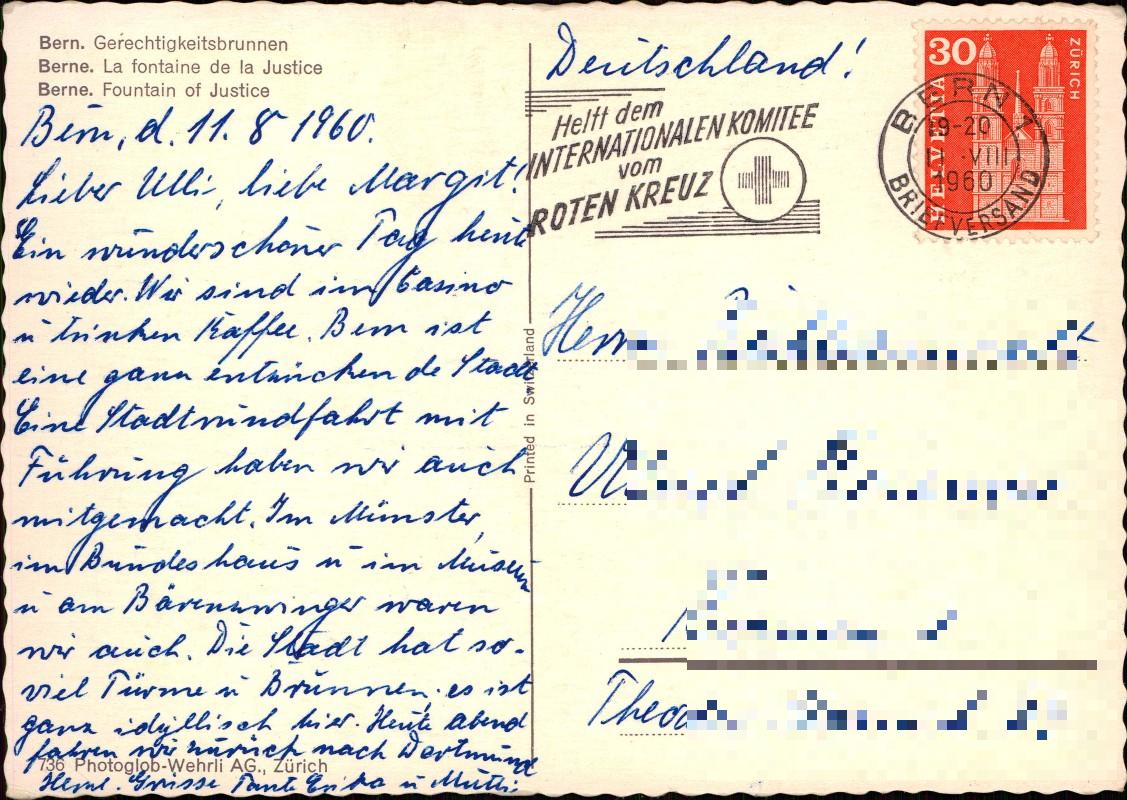 Bern. Gerechtigkeitsbrunnen
Berne. La fontaine de la Justice
Berne. Fountain of Justice
Bern, d. 11. 8 1960.
Lieber Ulli, liebe Margit!
Ein wunderschöner Tag heute
wieder. Wir sind im Casino
u trinken Kaffee. Bern ist
eine ganz entzückende Stadt
Eine Stadtrundfahrt mit
Führung haben wir auch
mitgemacht. Im Münster,
im Bundeshaus u im Museum
u am Bärenzwinger waren
wir auch. Die Stadt hat so-
viel Türme u Brunnen, es ist
ganz idyllisch hier. Heute abend
fahren wir zurück nach Dortmund
Herzl. Grüsse Tante Erika u Mutti
736 Photoglob-Wehrli AG., Zürich
Printed in Switzerland
Deutschland!
Helft dem
INTERNATIONALEN KOMITEE
vom
ROTEN KREUZ
30
ZÜRICH
HELVETIA
BERN 1
19-20
11.VIII
1960
BRIEFVERSAND
Herrn